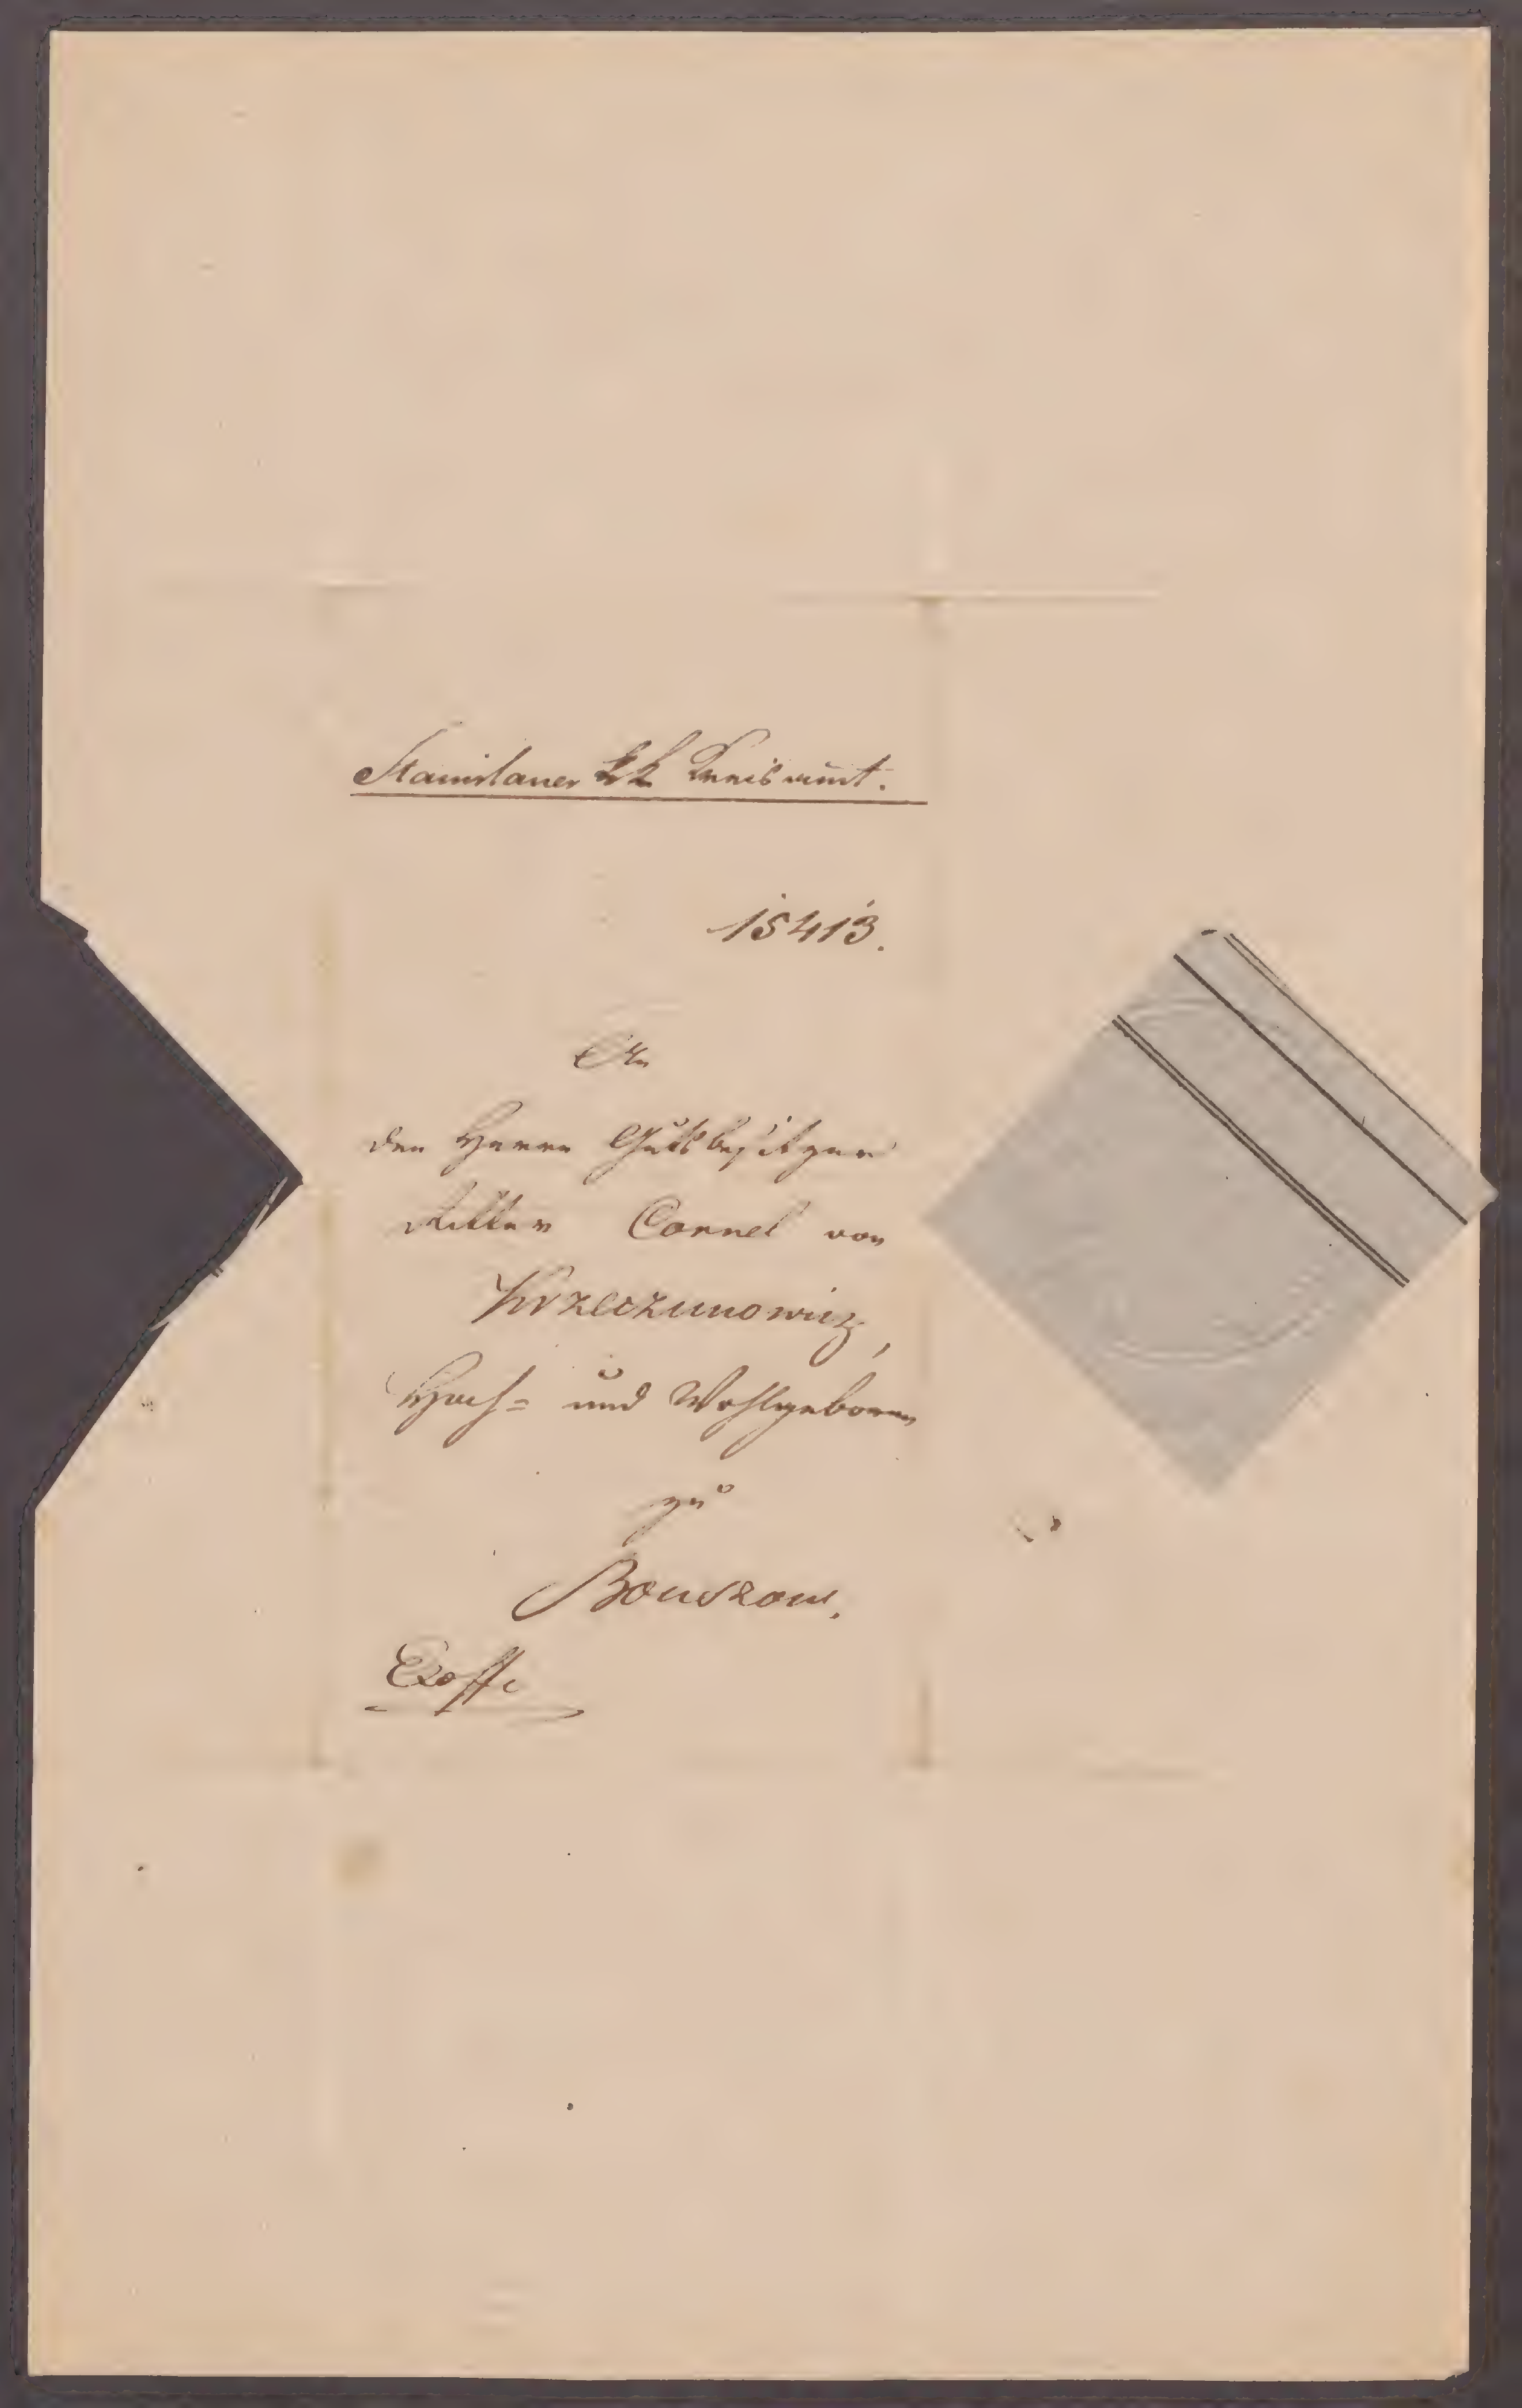 Stanislauer k k Kreisamt.
15413.
An
den Herrn Gutsbesitzer
Ritter Cornel von
Krzeczunowicz,
Hoch= und Wohlgeboren
zu
Bouszow.
Exoffo